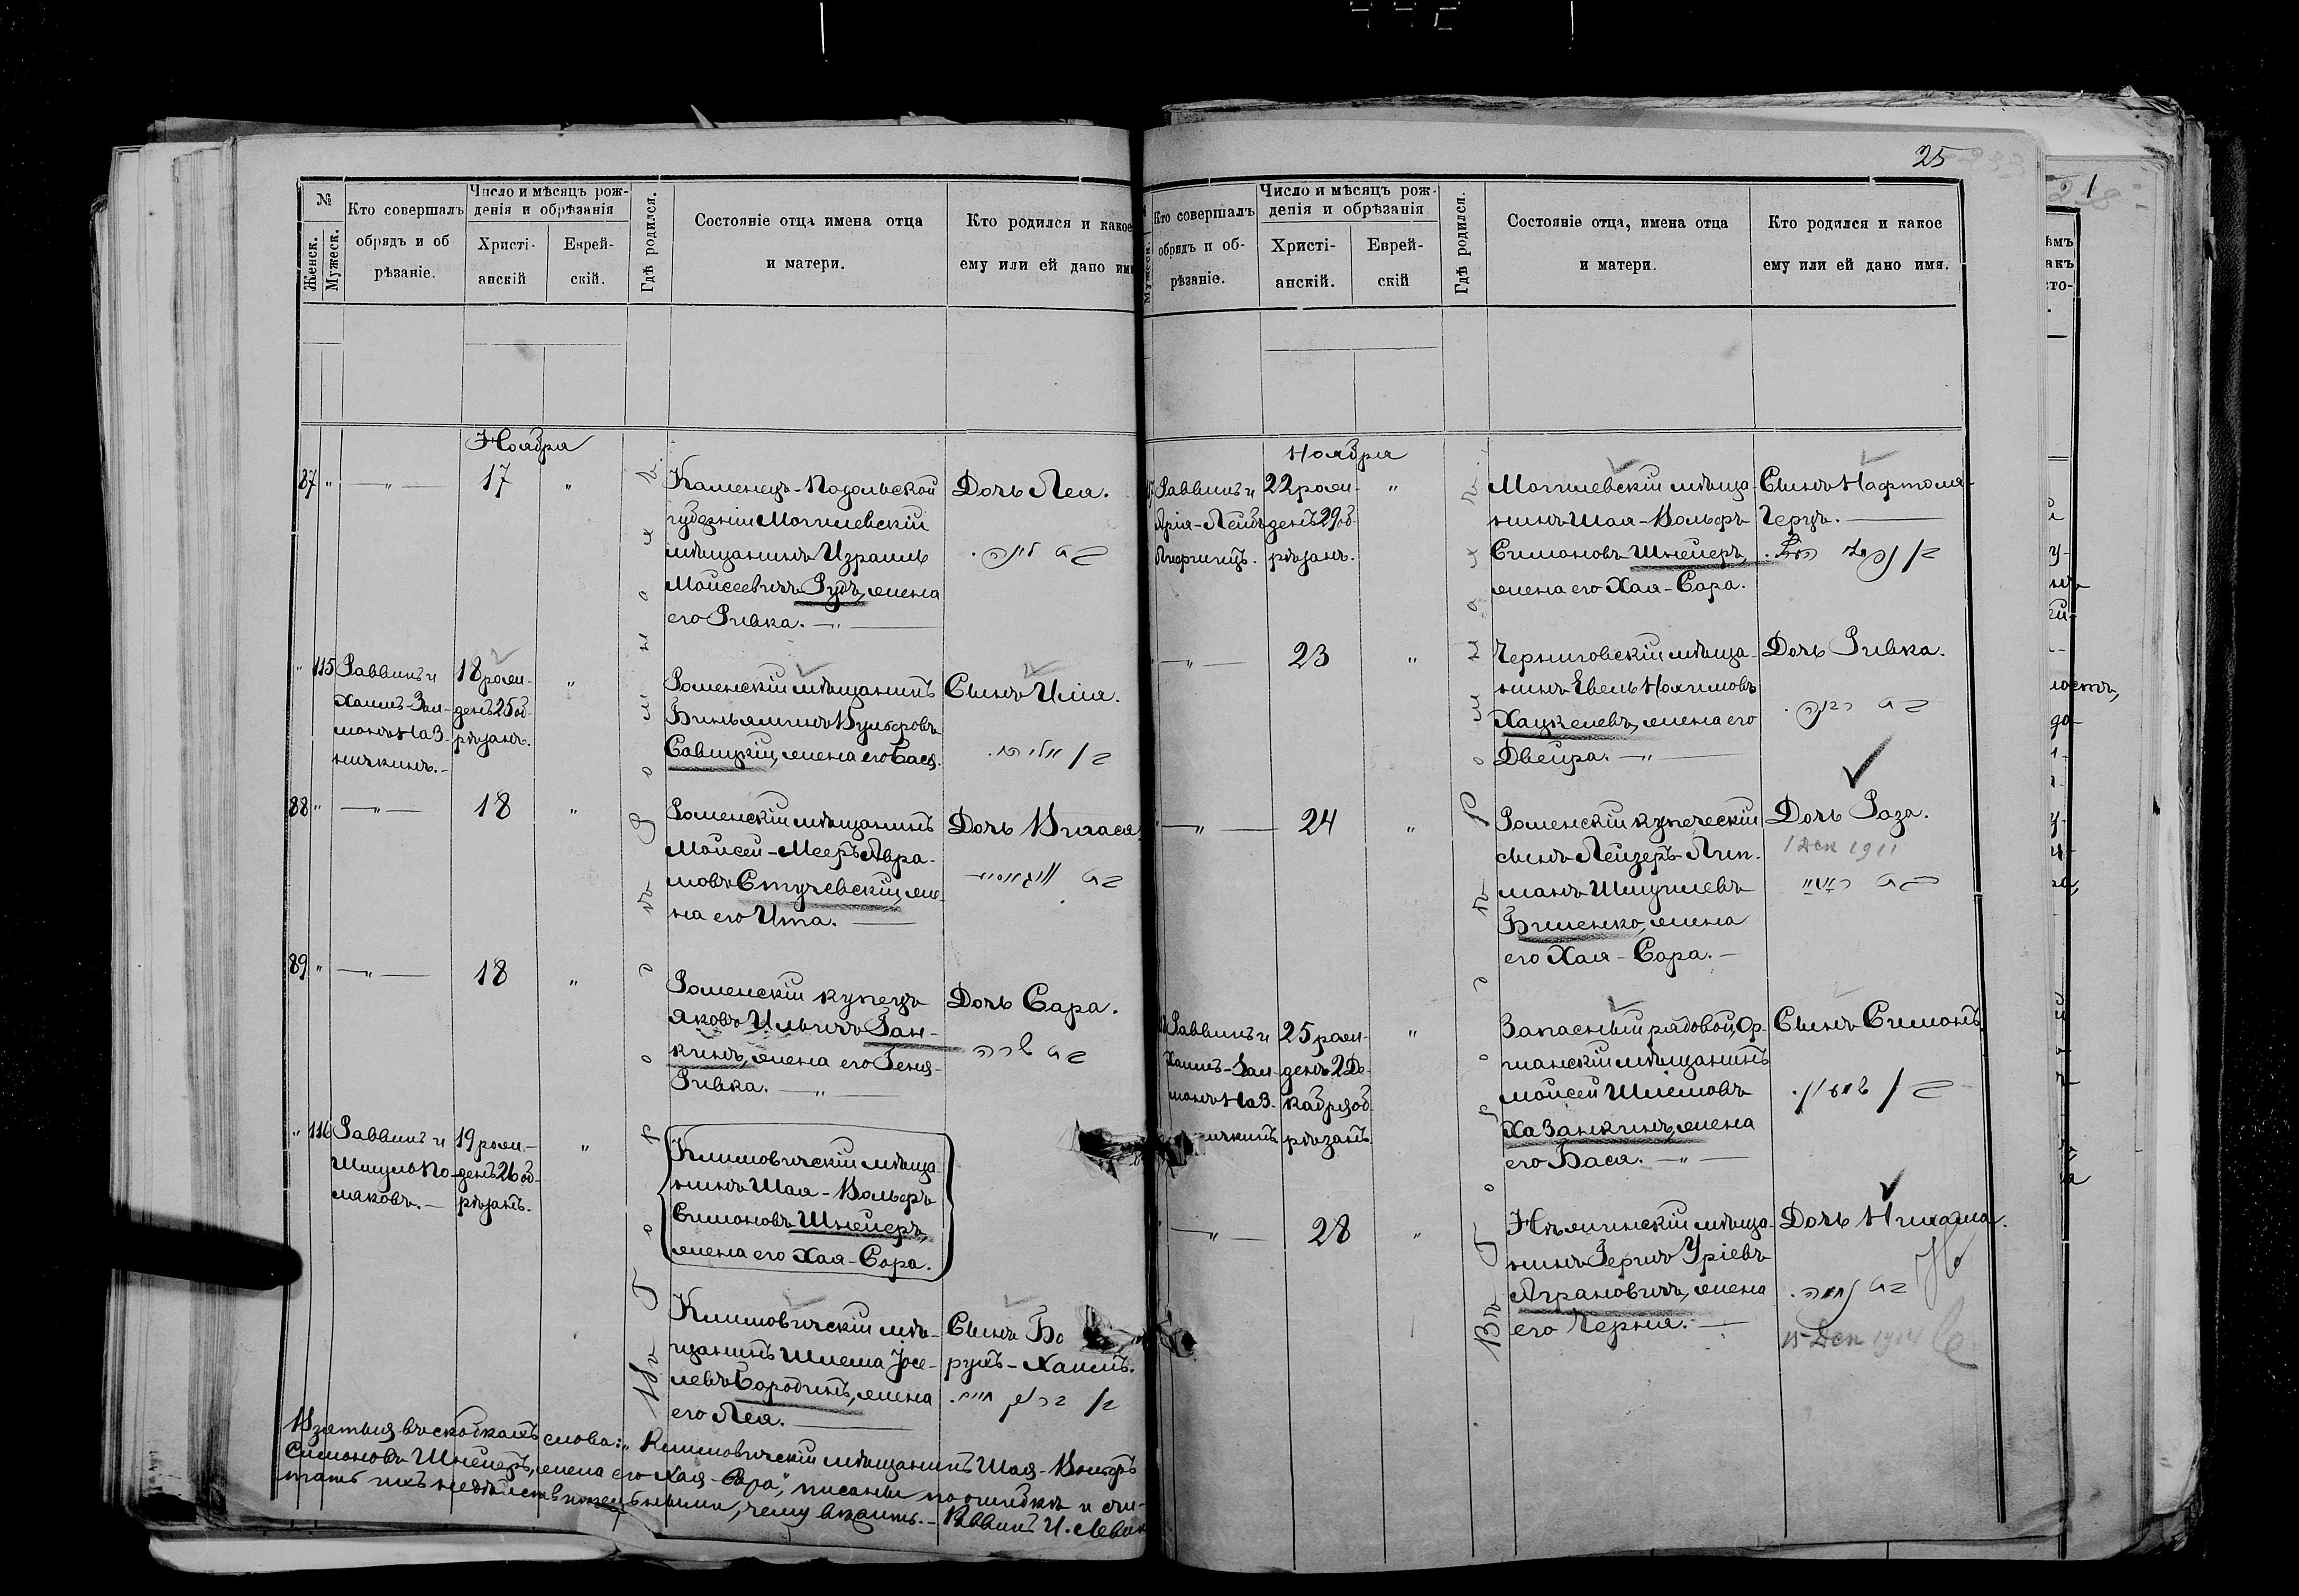 25
№
Женск.
Мужеск.
Кто совершалъ
обрядъ и об
рѣзаніе.
Число и мѣсяцъ рож-
денія и обрѣзанія
Христі-
анскій
Еврей-
скій.
Гдѣ родился.
Состояніе отца имена отца
и матери.
Кто родился и какое
ему или ей дано имя
Ноября
87 " — " — 17 "
Каменецъ-Подольской
губерніи Могилевскій
мѣщанинъ Израиль
Моисеевичъ Рудъ, жена
его Ривка. — " —
Дочь Лея.
" 115
Раввинъ и
Хаимъ-Зал-
манъ Наз-
ничкинъ. -
18 рож-
денъ 25 об-
рѣзанъ.
"
Роменскій мѣщанинъ
Биньяминъ Вульфовъ
Савицкій, жена его Бася.
Сынъ Илія.
88 " — " — 18 "
Роменскій мѣщанинъ
Моисей-Мееръ Авра-
мовъ Стучевскій, же-
на его Ита. —
Дочь Вихася
89 " — " — 18 "
Роменскій купецъ
Яковъ Ильичъ Зан-
кинъ, жена его Геня-
Ривка. — " —
Дочь Сара.
" 116
Раввинъ и
Шмуль По-
ляковъ. —
19 рож-
денъ 26 об-
рѣзанъ.
"
Климовичскій мѣща-
нинъ Шая-Вольфъ
Симоновъ Шнейеръ,
жена его Хая-Сора.
Климовичскій мѣ-
щанинъ Шлема Іосе-
левъ Бородинъ, жена
его Лея. —
Сынъ Бо
рухъ-Хаимъ.
Въ Г о р о д ѣ Р о м н а х ъ.
Взятыя въ скобкахъ слова: „Климовичскій мѣщанинъ Шая-Вольфъ
Симоновъ Шнейеръ, жена его Хая-Сора", писаны по ошибкѣ и счи-
тать ихъ недѣйствительными, чему вѣрить. - Раввинъ И. Левин
Мужеск.
Кто совершалъ
обрядъ и об-
рѣзаніе.
Число и мѣсяцъ рож-
денія и обрѣзанія
Христі-
анскій.
Еврей-
скій
Гдѣ родился.
Состояніе отца, имена отца
и матери.
Кто родился и какое
ему или ей дано имя.
Ноября
Раввинъ и
Арія-Лейбъ
Лифшицъ.
22 рож-
денъ 29 об-
рѣзанъ.
"
Могилевскій мѣща-
нинъ Шая-Вольфъ
Симоновъ Шнейеръ,
жена его Хая-Сора.
Сынъ Нафтоли-
Герцъ. —
— " — 23 "
Черниговскій мѣща-
нинъ Евель Нохимовъ
Хацкелевъ, жена его
Двейра. — " —
Дочь Ривка.
— " — 24 "
Роменскій купеческій
сынъ Лейзеръ-Лип-
манъ Шмуилевъ
Биленко, жена
его Хая-Сора. —
Дочь Роза.
1 Дек 1911
Раввинъ и
Хаимъ-Зал-
манъ Наз-
ичкинъ
25 рож-
денъ 2 Де-
кабря об-
рѣзанъ.
"
Запасный рядовой, Ор-
шанскій мѣщанинъ
Моисей Шлемовъ
Хазанкинъ, жена
его Бася. — " —
Сынъ Симонъ.
— " — 28 "
Нѣжинскій мѣща-
нинъ Герцъ Уріевъ
Аграновичъ, жена
его Черня. —
Дочь Нихама.
15 Дек 1914
Въ Г о р о д ѣ Р о м н а х ъ.